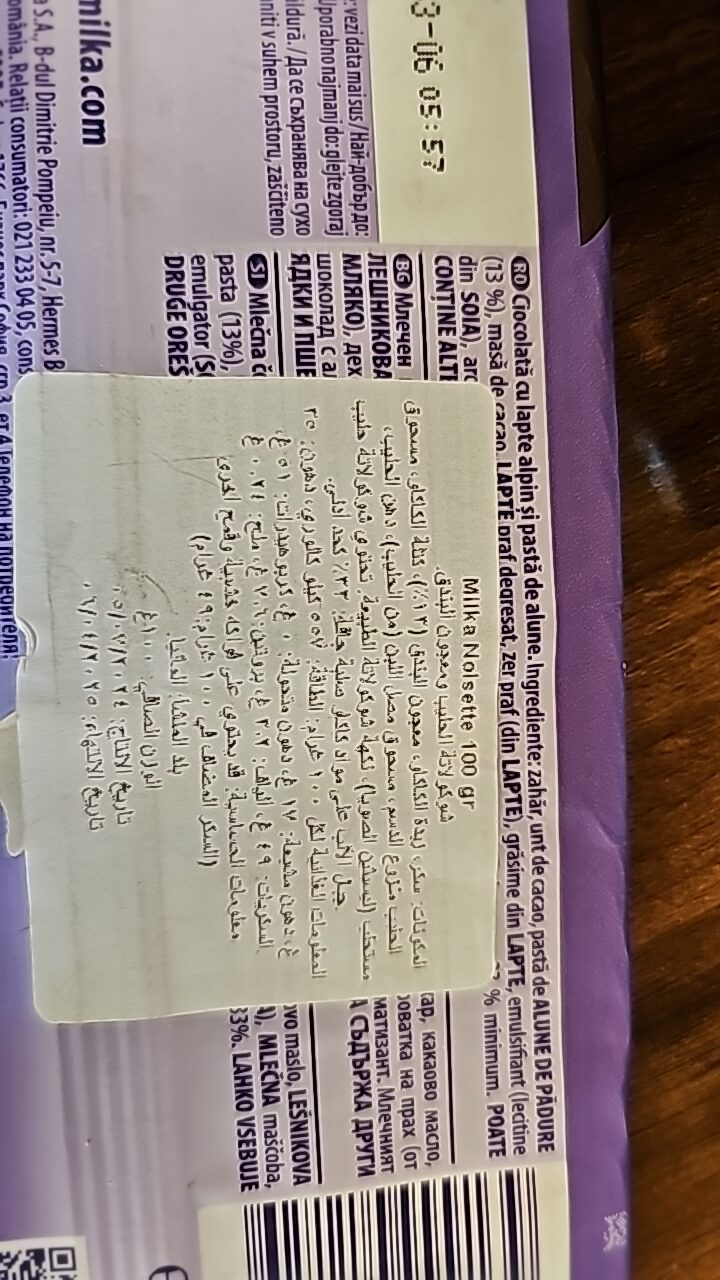 3-06 05:57
vezi data mai sus / Най-добър до:
Uporabno najmanj do: glejte zgoraj
ldură. / Да се съхранява на сухо
niti v suhem prostoru, zaščiteno
milka.com
a S.A., B-dul Dimitrie Pompeiu, nr. 5-7, Hermes B
omânia. Relatii consumatori: 021 233 04 05, cons
RO Ciocolată cu lapte alpin și pastă de alune. Ingrediente: zahăr, unt de cacao, pastă de ALUNE DE PĂDURE
(13 %), masă de cacao, LAPTE praf degresat, zer praf (din LAPTE), grăsime din LAPTE, emulsifiant (lecitine
din SOIA), arc % minimum. POATE
CONȚINE ALTE
BG Млечен тар, какаово масло,
ЛЕШНИКОВА роватка на прах (от
МЛЯКО), дех матизант. Млечният
шоколад с ал А СЪДЪРЖА ДРУГИ
ЯДКИ И ПШЕ
SI Mlečna č ovo maslo, LEŠNIKOVA
pasta (13%), MLEČNA maščoba,
emulgator (SO 33%. LAHKO VSEBUJE
DRUGE OREŠ
Milka Noisette 100 gr
شوكولاتة الحليب ومعجون البندق.
المكونات: سكر، زبدة الكاكاو، معجون البندق (١٣٪)، كتلة الكاكاو، مسحوق
الحليب منزوع الدسم، مسحوق مصل اللبن (من الحليب)، دهن الحليب،
مستحلب (ليسيثين الصويا)، نكهة. شوكولاتة الطبيعة. تحتوي شوكولاتة حليب
جبال الألب على مواد كاكاو صلبة جافة: ٣٣٪ كحد أدنى.
المعلومات الغذائية لكل ١٠٠ غرام: الطاقة: ٥٥٧ كيلو كالوري، دهون: ٣٥
غ، دهون مشبعة: ١٧ غ، دهون متحولة: ٠ غ، كربوهيدرات: ٥١ غ،
السكريات: ٤٩ غ، الياف: ٣.٢ غ، بروتين: ٧.٦ غ، ملح: ٠.٢٤ غ
معلومات الحساسية: قد يحتوي على فواكه خشبية وقمح اخرى
(السكر المضاف في ١٠٠ غرام: ٤٩ غرام)
بلد المنشأ: المانيا
الوزن الصافي: ١٠٠غ
تاريخ الانتاج: ٠٥/٠٧/٢٠٢٤
تاريخ الانتهاء: ٠٦/٠٤/٢٠٢٥